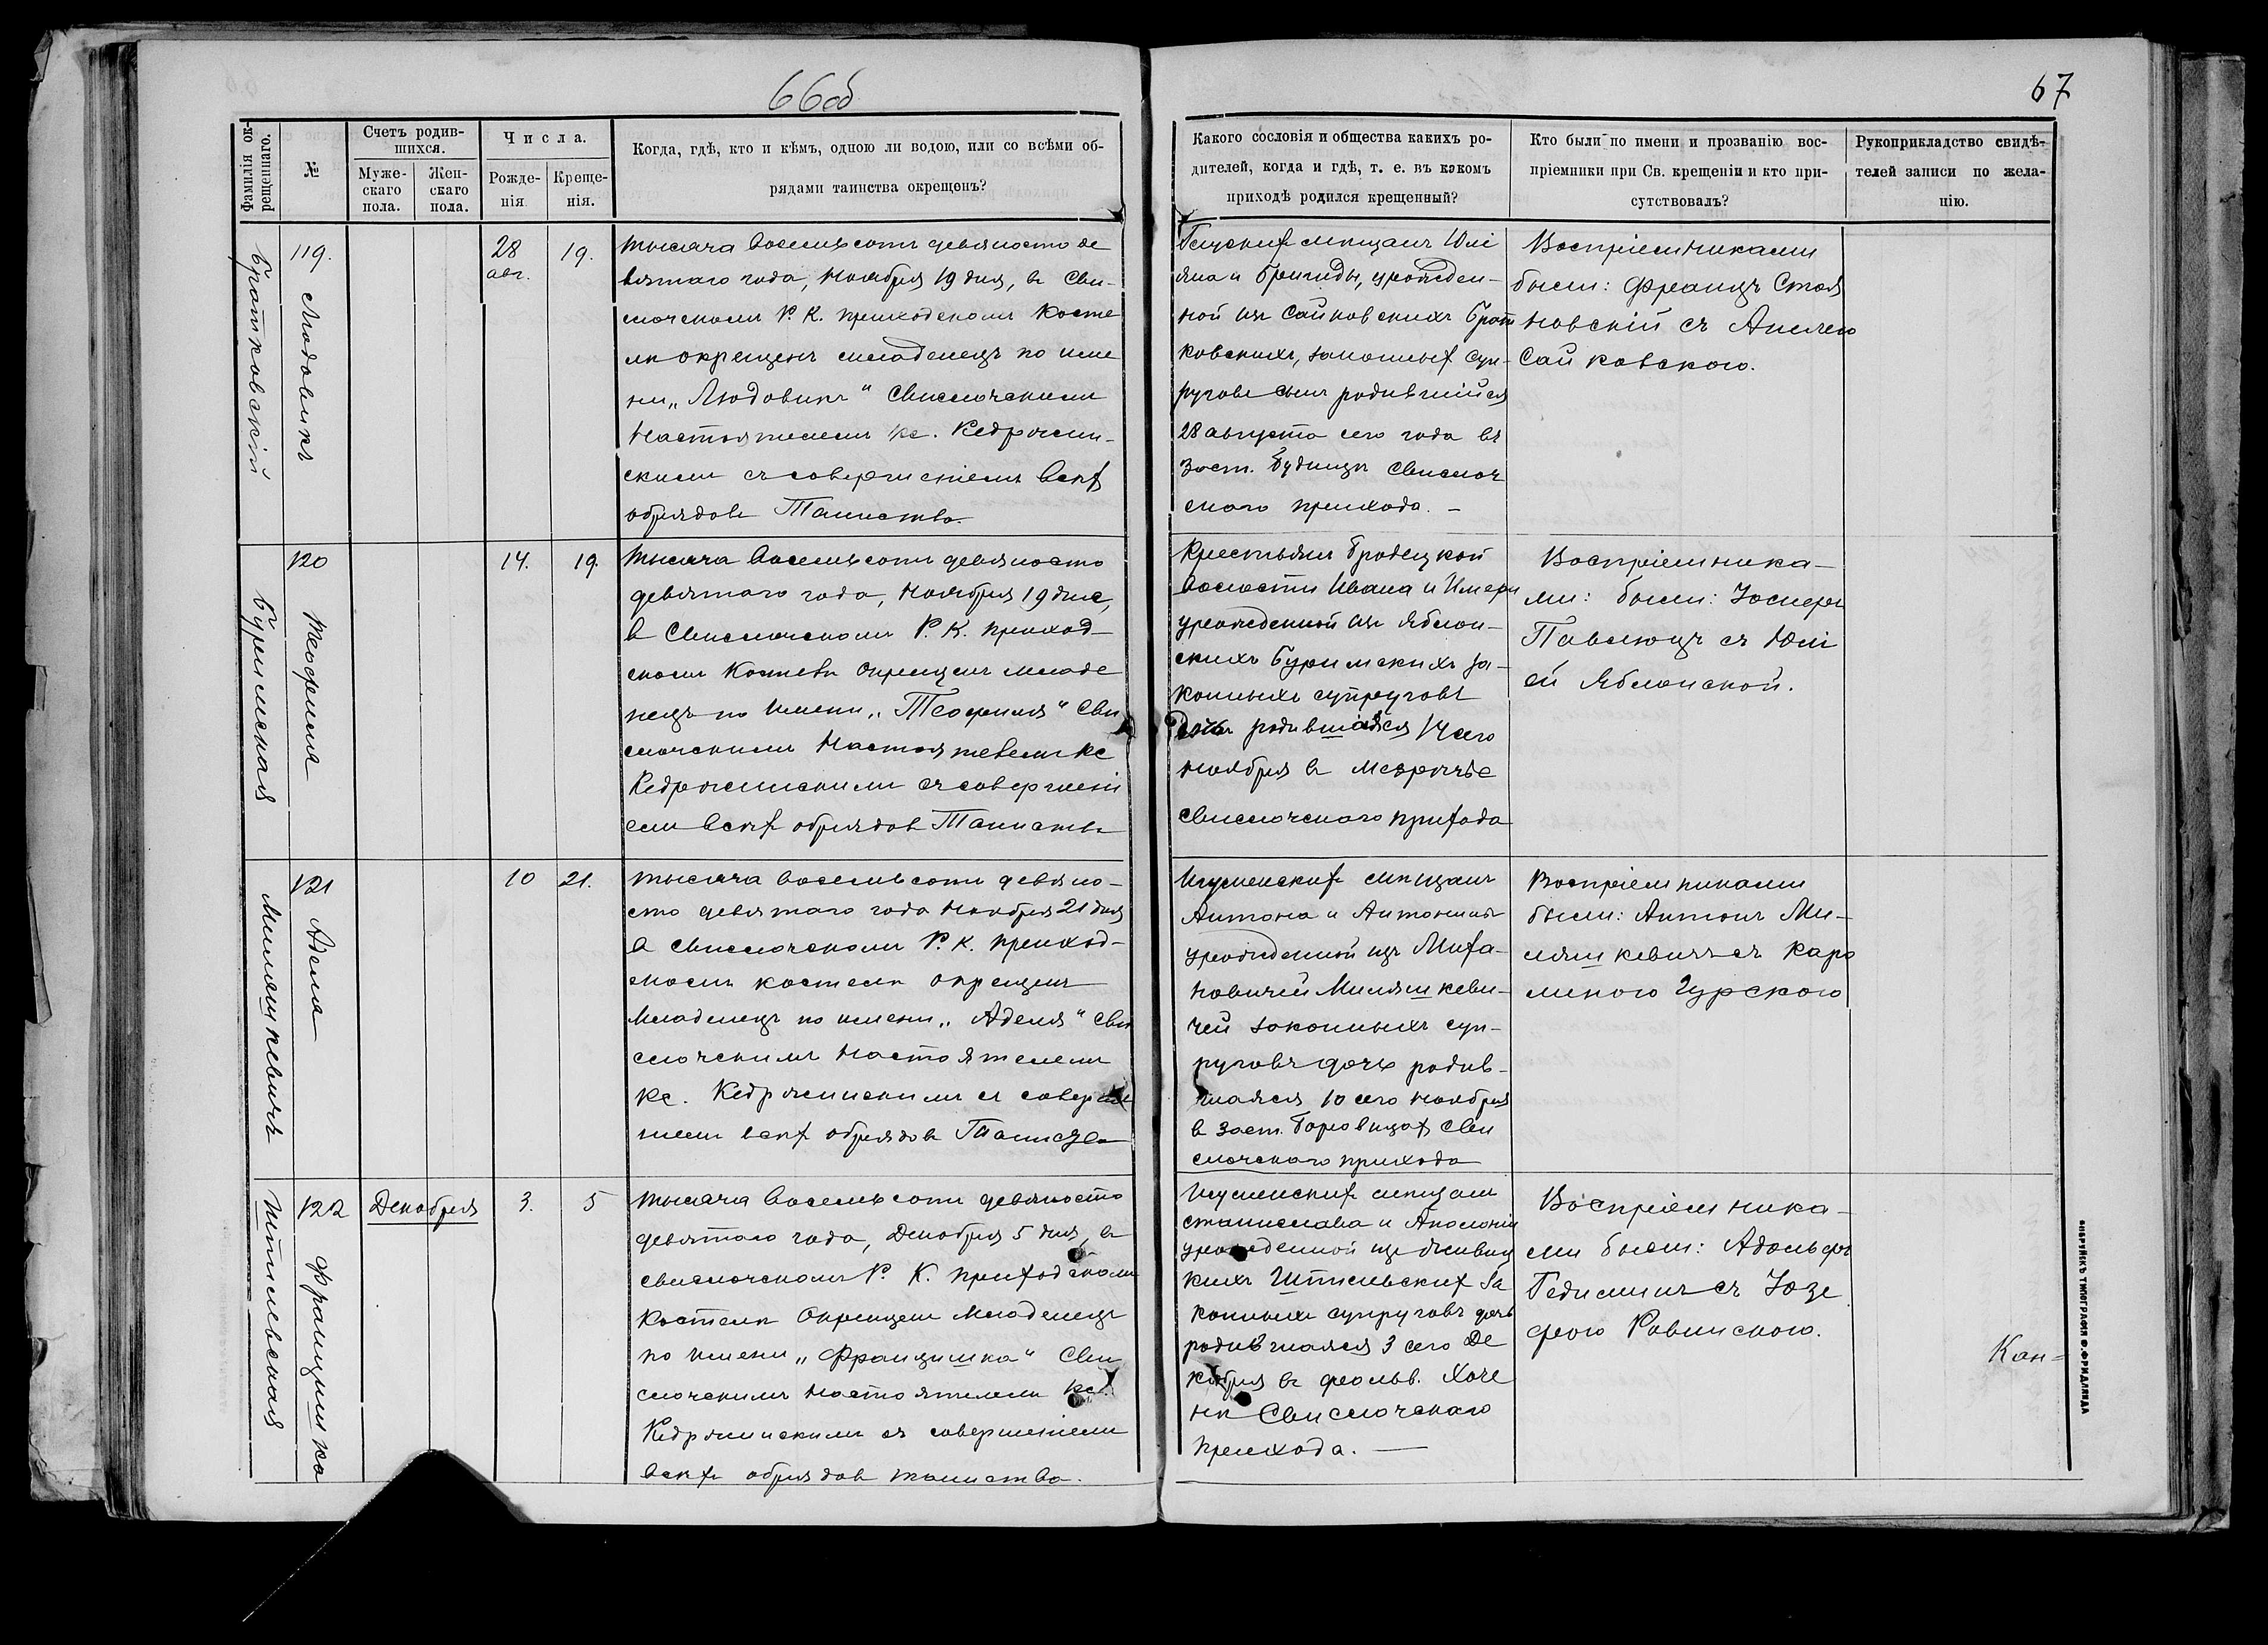 66об
67
Фамилія ок-
рещеннаго.
№
Счетъ родив-
шихся.
Муже-
скаго
пола.
Жен-
скаго
пола.
Числа.
Рожде-
нія
Креще-
нія.
Когда, гдѣ, кто и кѣмъ, одною ли водою, или со всѣми об-
рядами таинства окрещенъ?
Какого сословія и общества какихъ ро-
дителей, когда и гдѣ, т. е. въ какомъ
приходѣ родился крещенный?
Кто были по имени и прозванію вос-
пріемники при Св. крещеніи и кто при-
сутствовалъ?
Рукоприкладство свидѣ-
телей записи по жела-
нію.
Братковскій
119.
Людовикъ
28
авг.
19.
тысяча восемьсотъ девяносто де
вятаго года, Ноября 19 дня, въ Сви-
слочскомъ Р. К. приходскомъ Косте
лѣ окрещенъ младенецъ по име
ни „Людовикъ" Свислочскимъ
Настоятелемъ кс. Кедржин-
скимъ съ совершеніемъ всѣх
обрядовъ Таинства.
мѣщанъ Юлі
яна и Бригиды, урожден-
ной изъ Сайковскихъ Брат
ковскихъ, законных суп-
руговъ сынъ родившійся
28 августа сего года въ
Заст. Будищи Свислоч
скаго прихода. —
Воспріемниками
были: Францъ Стоя
новскій съ Анелею
Сайковскою.
Буримская
120
Теофиля
14.
19.
тысяча восемьсотъ девяносто
девятаго года, Ноября 19 дня,
въ Свислочскомъ Р. К. приход-
скомъ Костелѣ окрещенъ младе
нецъ по имени „Теофиля" Сви
слочскимъ Настоятелемъ кс
Кедржинскимъ съ совершені
емъ всѣх обрядовъ Таинства
Крестьянъ Бродецкой
волости Ивана и
урожденной изъ Яблон-
скихъ Буримскихъ за-
конныхъ супруговъ
Дочь родившаяся 14 сего
ноября въ Мезрѣчьѣ
Свислочскаго прихода
Воспріемника-
ми: были: Іосифъ
Павлющъ съ Юлі
ей Яблонской.
Миляшкевичъ
121
Аделя
10
21.
тысяча восемьсотъ девяно-
сто девятаго года Ноября 21 дня
въ Свислочскомъ Р. К. приход-
скомъ костелѣ окрещенъ
младенецъ по имени „Аделя" Сви
слочскимъ Настоятелемъ
кс. Кедржинскимъ съ соверше
ніемъ всѣх обрядовъ Таинства
Игуменских мѣщанъ
Антона и Антонины
урожденной изъ Миха-
новичей Миляшкеви-
чей законныхъ суп-
руговъ дочь родив-
шаяся 10 сего ноября
въ Заст. Боровицах Сви
слочскаго прихода
Воспріемниками
были: Антонъ Ми-
ляшкевичъ съ Каро
линою Гурскою
Штпилевская
122
Францишка
Декабря
3.
5
тысяча восемьсотъ девяносто
девятаго года, Декабря 5 дня, въ
Свислочскомъ Р. К. приходскомъ
Костелѣ Окрещенъ младенецъ
по имени „Францишка" Сви
слочскимъ Настоятелемъ кс.
Кедржинскимъ съ совершеніемъ
всѣх обрядовъ таинства.
Игуменских мѣщанъ
Станислава и Аполоніи
урожденной изъ
кихъ за
конныхъ супруговъ дочь
родившаяся 3 сего Де
кабря въ фольв. Хоче
нѣ Свислочскаго
прихода. —
Воспріемника-
ми были: Адольфъ
Гедиминъ съ Юзе
фою Равинскою.
Кан=
БОБРУЙСКЪ ТИПОГРАФІЯ Ф. ФРИДЛЯНДА